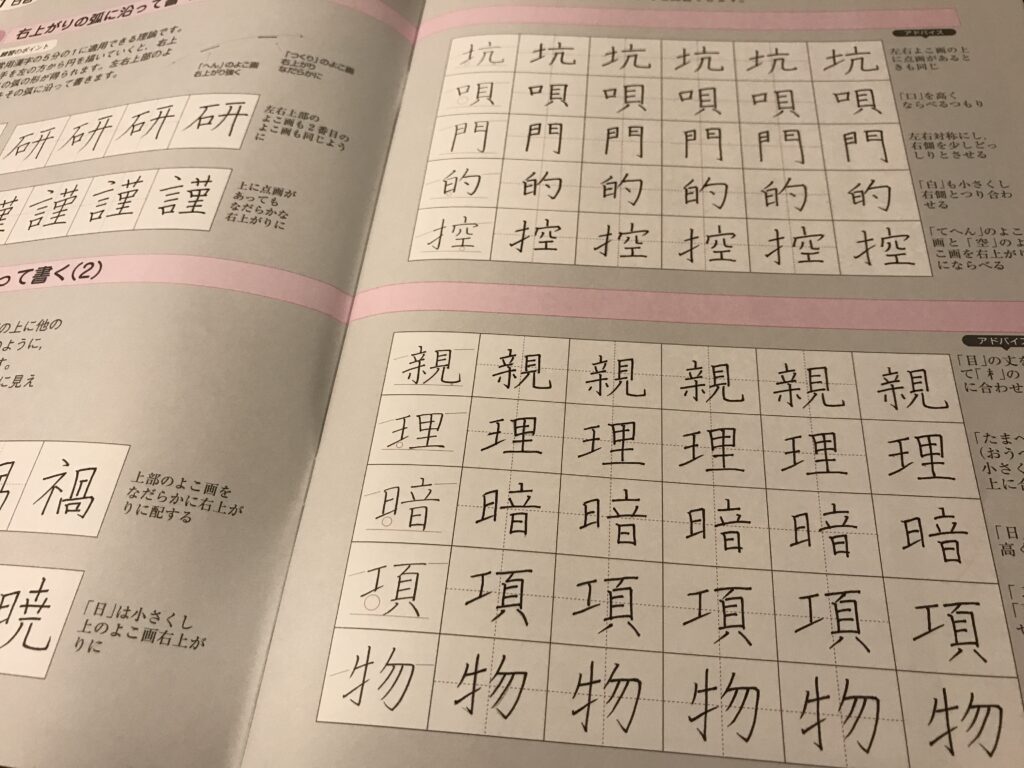 右上がりの弧に沿って書
のポイント
用漢字の5分の1に適用できる理論です。
手を左の方から円を描いていくと、右上
の弧の形が得られます。左右上部のよ
その弧に沿って書きます。
「へん」のよこ画
右上がり強く
「つくり」のよこ画
右上がり
なだらかに
研 研 研 研
左右上部の
よこ画も2番目の
よこ画も同じよう
に
謹 謹 謹 謹
上に点画が
あっても
なだらかな
右上がりに
って書く(2)
の上に他の
のように、
す。
に見え
禍
上部のよこ画を
なだらかに右上が
りに配する
暁
「日」は小さくし
上のよこ画右上が
りに
アドバイス
坑 坑 坑 坑 坑 坑
左右よこ画の上
に点画があると
きも同じ
唄 唄 唄 唄 唄 唄
「口」を高く
ならべるつもり
門 門 門 門 門 門
左右対称にし、
右側を少しどっ
しりとさせる
的 的 的 的 的 的
「白」も小さくし
右側とつり合わ
せる
控 控 控 控 控 控
「てへん」のよこ
画と「空」のよ
こ画を右上がり
にならべる
アドバイス
親 親 親 親 親 親
「目」の丈を
に合わせ
理 理 理 理 理 理
「たまへ
(おうへ
小さく
上に合
暗 暗 暗 暗 暗 暗
「日
高く
項 項 項 項 項 項
物 物 物 物 物 物